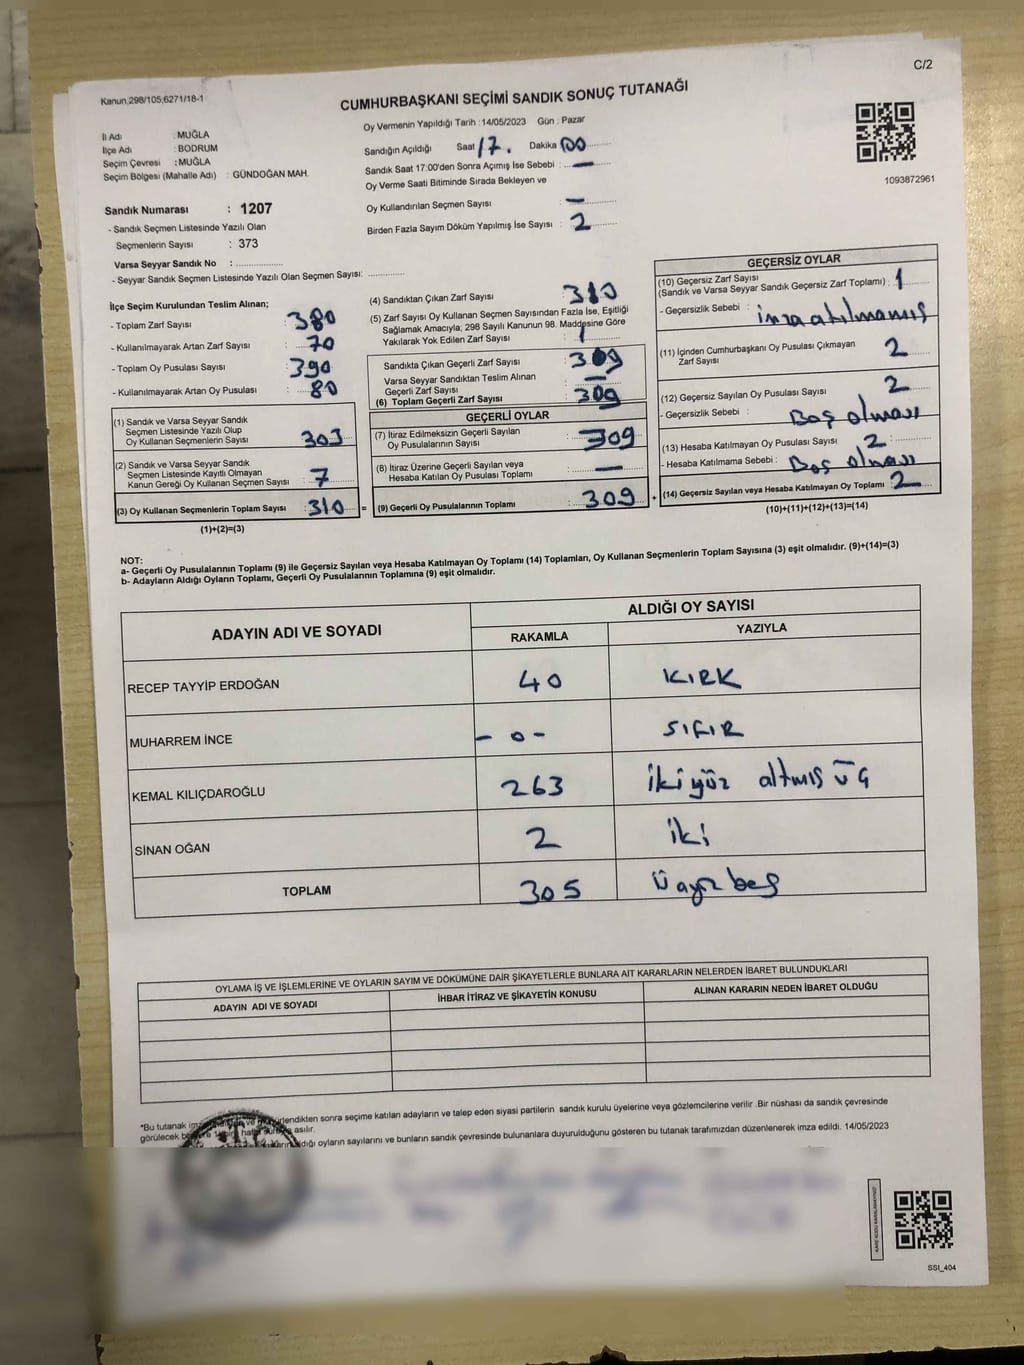 C/2
Kanun,298/105,6271/18-1
CUMHURBAŞKANI SEÇİMİ SANDIK SONUÇ TUTANAĞI
İl Adı : MUĞLA
İlçe Adı : BODRUM
Seçim Çevresi : MUĞLA
Seçim Bölgesi (Mahalle Adı) : GÜNDOĞAN MAH.
Sandık Numarası : 1207
- Sandık Seçmen Listesinde Yazılı Olan
Seçmenlerin Sayısı : 373
Varsa Seyyar Sandık No :
- Seyyar Sandık Seçmen Listesinde Yazılı Olan Seçmen Sayısı:
Oy Vermenin Yapıldığı Tarih : 14/05/2023 Gün : Pazar
Sandığın Açıldığı Saat 17. Dakika 00
Sandık Saat 17:00'den Sonra Açımış İse Sebebi : —
Oy Verme Saati Bitiminde Sırada Bekleyen ve
Oy Kullandırılan Seçmen Sayısı : —
Birden Fazla Sayım Döküm Yapılmış İse Sayısı : 2
1093872961
İlçe Seçim Kurulundan Teslim Alınan;
- Toplam Zarf Sayısı : 380
- Kullanılmayarak Artan Zarf Sayısı : 70
- Toplam Oy Pusulası Sayısı : 390
- Kullanılmayarak Artan Oy Pusulası : 80
(1) Sandık ve Varsa Seyyar Sandık
Seçmen Listesinde Yazılı Olup
Oy Kullanan Seçmenlerin Sayısı : 303
(2) Sandık ve Varsa Seyyar Sandık
Seçmen Listesinde Kayıtlı Olmayan
Kanun Gereği Oy Kullanan Seçmen Sayısı : 7
(3) Oy Kullanan Seçmenlerin Toplam Sayısı : 310 =
(1)+(2)=(3)
(4) Sandıktan Çıkan Zarf Sayısı : 310
(5) Zarf Sayısı Oy Kullanan Seçmen Sayısından Fazla İse, Eşitliği
Sağlamak Amacıyla; 298 Sayılı Kanunun 98. Maddesine Göre
Yakılarak Yok Edilen Zarf Sayısı : 1
Sandıkta Çıkan Geçerli Zarf Sayısı : 309
Varsa Seyyar Sandıktan Teslim Alınan
Geçerli Zarf Sayısı : —
(6) Toplam Geçerli Zarf Sayısı : 309
GEÇERLİ OYLAR
(7) İtiraz Edilmeksizin Geçerli Sayılan
Oy Pusulalarının Sayısı : 309
(8) İtiraz Üzerine Geçerli Sayılan veya
Hesaba Katılan Oy Pusulası Toplamı : —
(9) Geçerli Oy Pusulalarının Toplamı : 309 +
GEÇERSİZ OYLAR
(10) Geçersiz Zarf Sayısı
(Sandık ve Varsa Seyyar Sandık Geçersiz Zarf Toplamı) : 1
- Geçersizlik Sebebi : imza atılmamış
(11) İçinden Cumhurbaşkanı Oy Pusulası Çıkmayan
Zarf Sayısı : 2
(12) Geçersiz Sayılan Oy Pusulası Sayısı : 2
- Geçersizlik Sebebi : Boş olması
(13) Hesaba Katılmayan Oy Pusulası Sayısı : 2
- Hesaba Katılmama Sebebi : Boş olması
(14) Geçersiz Sayılan veya Hesaba Katılmayan Oy Toplamı : 2
(10)+(11)+(12)+(13)=(14)
NOT:
a- Geçerli Oy Pusulalarının Toplamı (9) ile Geçersiz Sayılan veya Hesaba Katılmayan Oy Toplamı (14) Toplamları, Oy Kullanan Seçmenlerin Toplam Sayısına (3) eşit olmalıdır. (9)+(14)=(3)
b- Adayların Aldığı Oyların Toplamı, Geçerli Oy Pusulalarının Toplamına (9) eşit olmalıdır.
ADAYIN ADI VE SOYADI
ALDIĞI OY SAYISI
RAKAMLA YAZIYLA
RECEP TAYYİP ERDOĞAN 40 KIRK
MUHARREM İNCE - 0 - SIFIR
KEMAL KILIÇDAROĞLU 263 iki yüz altmış üç
SİNAN OĞAN 2 iki
TOPLAM 305 Üçyüz beş
OYLAMA İŞ VE İŞLEMLERİNE VE OYLARIN SAYIM VE DÖKÜMÜNE DAİR ŞİKAYETLERLE BUNLARA AİT KARARLARIN NELERDEN İBARET BULUNDUKLARI
ADAYIN ADI VE SOYADI İHBAR İTİRAZ VE ŞİKAYETİN KONUSU ALINAN KARARIN NEDEN İBARET OLDUĞU
*Bu tutanak imz rlendikten sonra seçime katılan adayların ve talep eden siyasi partilerin sandık kurulu üyelerine veya gözlemcilerine verilir .Bir nüshası da sandık çevresinde
görülecek asılır.
dığı oyların sayılarını ve bunların sandık çevresinde bulunanlara duyurulduğunu gösteren bu tutanak tarafımızdan düzenlenerek imza edildi. 14/05/2023
SSI_404